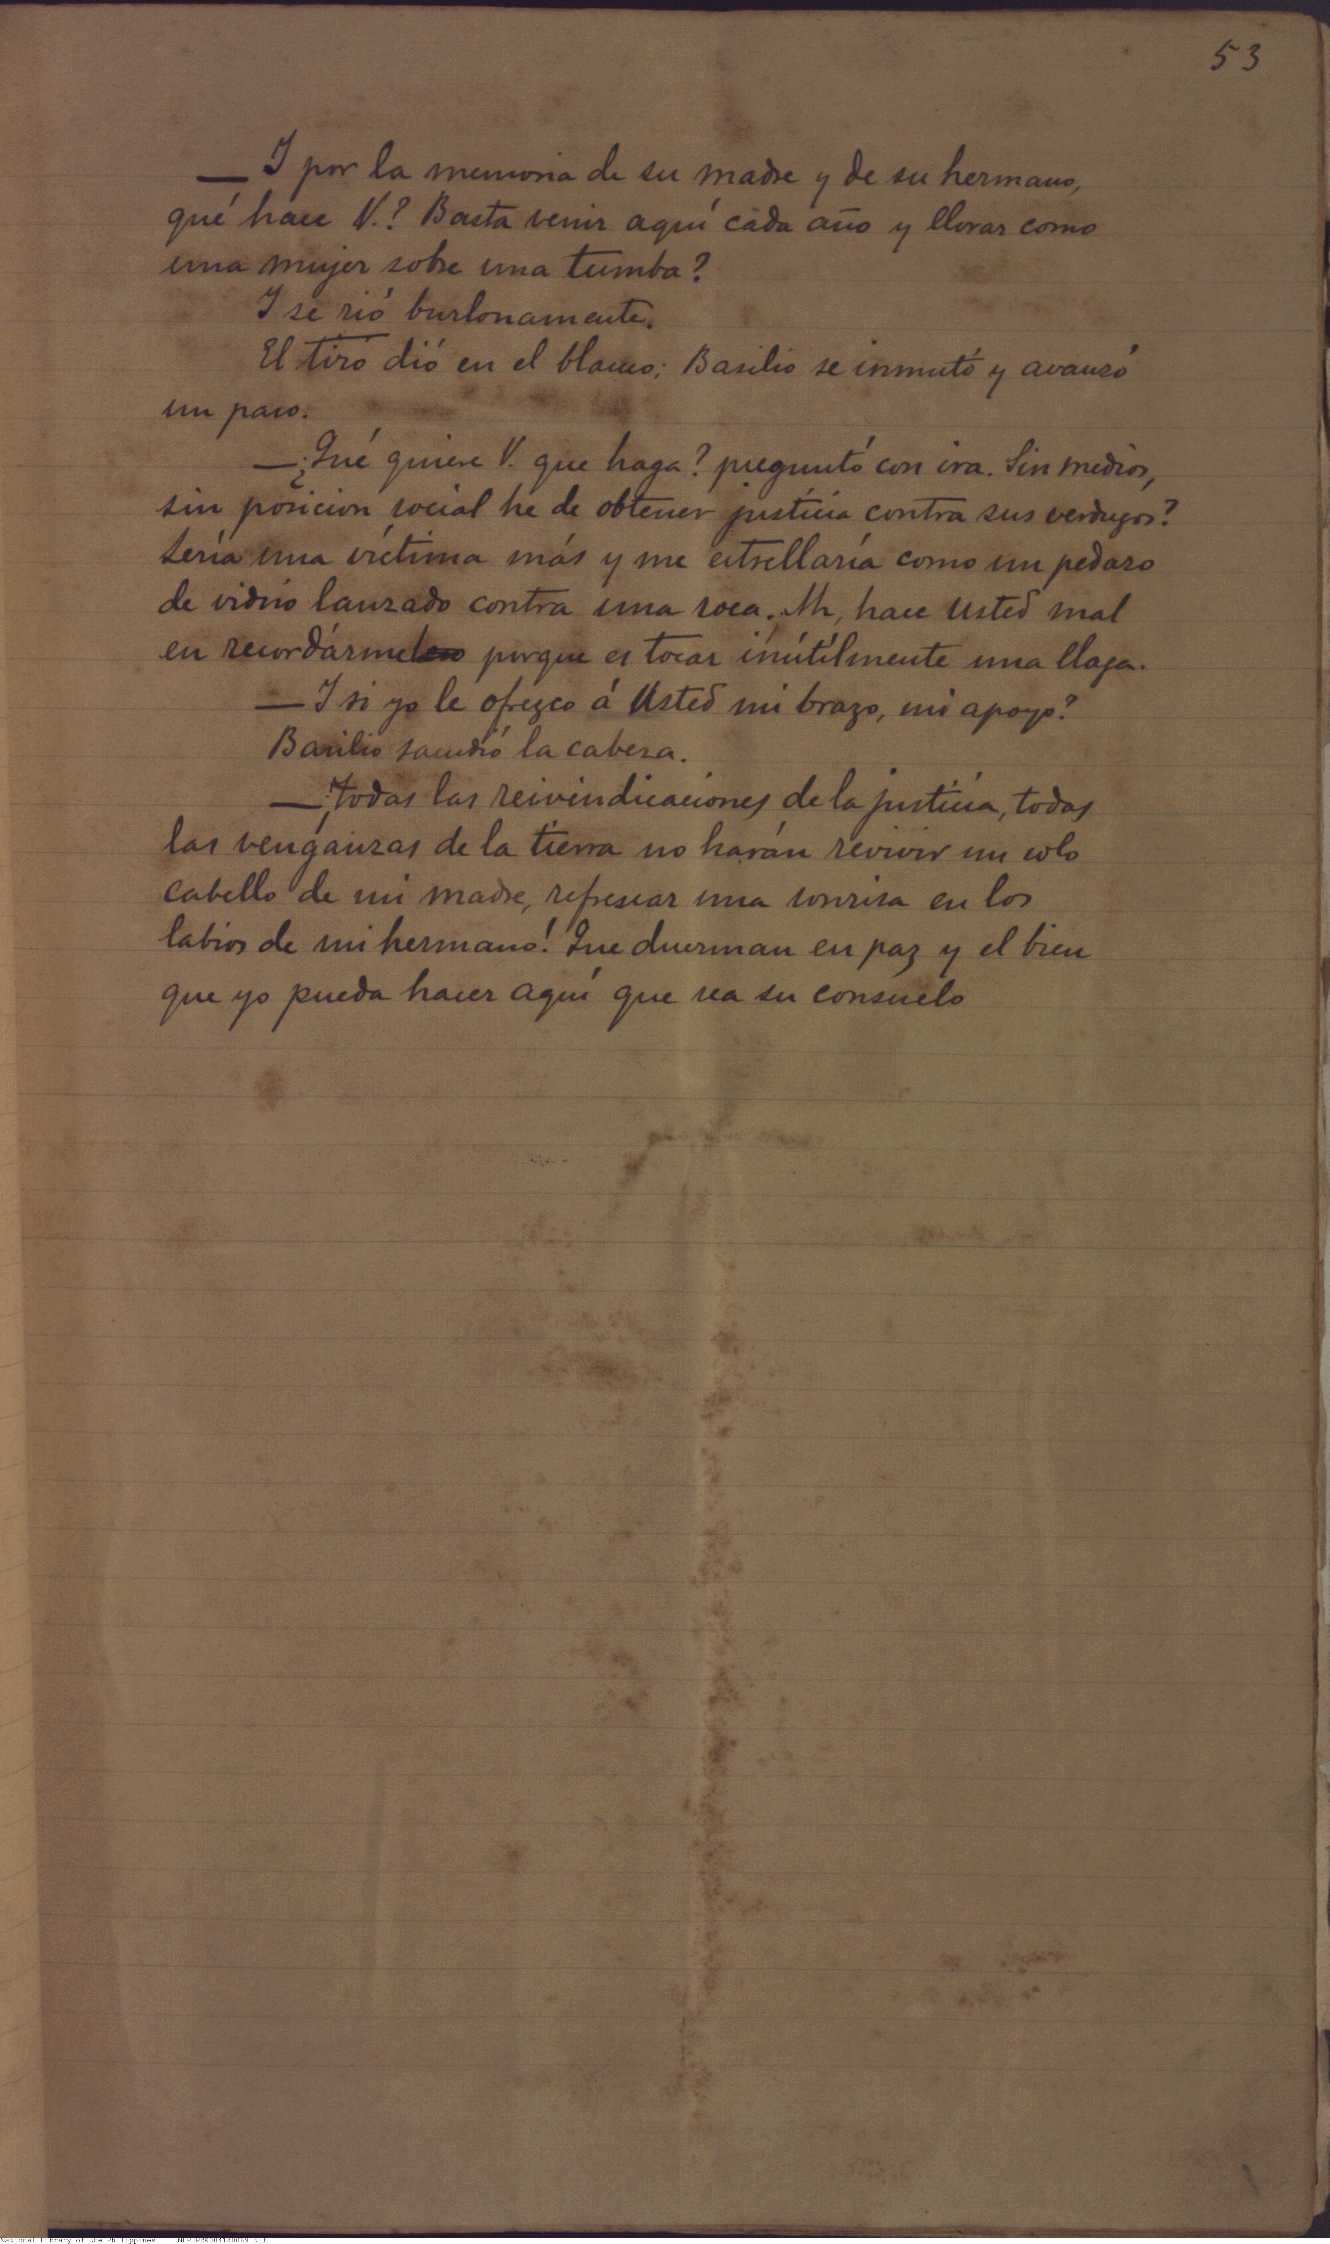 53
— I por la memoria de su madre y de su hermano,
qué hace V.? Basta venir aquí cada año y llorar como
una mujer sobre una tumba?
I se rió burlonamente.
El tiro dió en el blanco; Basilio se inmutó y avanzó
un paso.
— ¿Qué quiere V. que haga? preguntó con ira. Sin medios,
sin posicion social he de obtener justicia contra sus verdugos?
Sería una víctima más y me estrellaría como un pedazo
de vidrio lanzado contra una roca. Ah, hace Usted mal
en recordármelo porque es tocar inútilmente una llaga.
— I si yo le ofrezco á Usted mi brazo, mi apoyo?
Basilio sacudió la cabeza.
— ¡Todas las reivindicaciones de la justicia, todas
las venganzas de la tierra no harán revivir un solo
cabello de mi madre, refrescar una sonrisa en los
labios de mi hermano! Que duerman en paz y el bien
que yo pueda hacer aquí que sea su consuelo
National Library of the Philippines